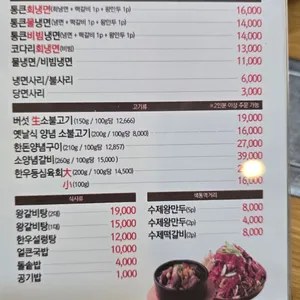 통큰회냉면(회냉면 + 떡갈비 1p + 왕만두 1p) 16,000
통큰물냉면(냉면 + 떡갈비 1p + 왕만두 1p) 14,000
통큰비빔냉면(냉면 + 떡갈비 1p + 왕만두 1p) 14,000
코다리회냉면(비빔) 13,000
물냉면/비빔냉면 11,000
냉면사리/불사리 6,000
당면사리 3,000
고기류 ※2인분 이상 주문 가능
버섯 生소불고기(150g / 100g당 12,666) 19,000
옛날식 양념 소불고기(200g / 100g당 8,000) 16,000
한돈양념구이(210g / 100g당 12,857) 27,000
소양념갈비(260g / 100g당 15,000) 39,000
한우등심육회大(200g / 100g당 14,500)
小(100g) 16,000
식사류
왕갈비탕(2대) 19,000
왕갈비탕(1대) 15,000
한우설렁탕 12,000
얼큰국밥 10,000
돌솥밥 4,000
공기밥 1,000
색동먹거리
수제왕만두(5p) 8,000
수제왕만두(2p) 4,000
수제떡갈비(2p) 8,000